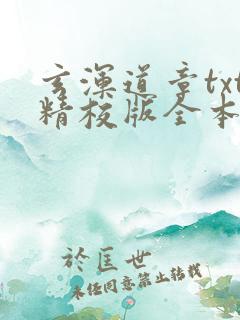 玄浑道章txt
精校版全本
於匡世
未经同意禁止转载